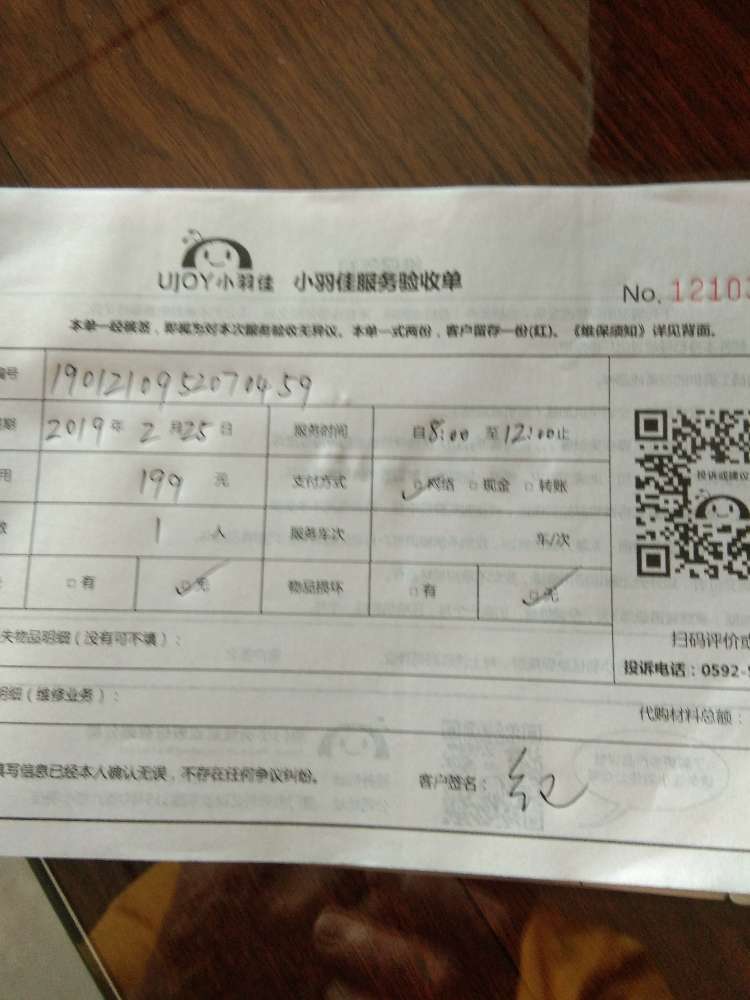 UJOY小羽佳 小羽佳服务验收单
No. 12103
本单一经签签，即视为对本次服务验收无异议。本单一式两份，客户留存一份(红)。《维保须知》详见背面。
编号 1901210952070459
期 2019年2月25日 服务时间 自8:00至12:00止
用 199 元 支付方式 网络 现金 转账
数 1 人 服务车次 车/次
有 无 物品损坏 有 无
投诉或建议
失物品明细（没有可不填）：
扫码评价或
投诉电话：0592-5
明细（维修业务）：
代购材料总额：
填写信息已经本人确认无误，不存在任何争议纠纷。
客户签名：纪